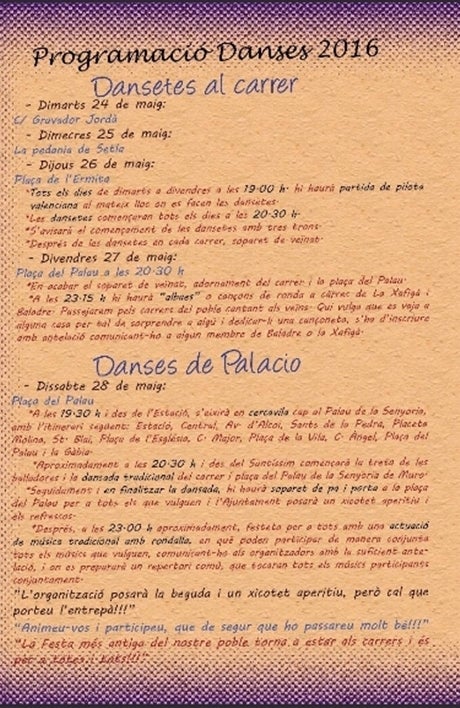 Programació Danses 2016
Dansetes al carrer
- Dimarts 24 de maig:
C/ Gravador Jordà
- Dimecres 25 de maig:
La pedania de Setla
- Dijous 26 de maig:
Plaça de l'Ermita
*Tots els dies de dimarts a divendres a les 19:00 h. hi haurà partida de pilota
valenciana al mateix lloc on es facen les dansetes.
*Les dansetes començaran tots els dies a les 20:30 h.
*S'avisarà el començament de les dansetes amb tres trons.
*Després de les dansetes en cada carrer, soparet de veïnat.
- Divendres 27 de maig:
Plaça del Palau a les 20:30 h
*En acabar el soparet de veïnat, adornament del carrer i la plaça del Palau.
*A les 23:15 h hi haurà "albaes" o cançons de ronda a càrrec de La Xafigà i
Baladre. Passejarem pels carrers del poble cantant als veïns. Qui vulga que es vaja a
alguna casa per tal de sorprendre a algú i dedicar-li una cançoneta, s'ha d'inscriure
amb antelació comunicant-ho a algun membre de Baladre o la Xafigà.
Danses de Palacio
- Dissabte 28 de maig:
Plaça del Palau
*A les 19:30 h i des de l'Estació, s'eixirà en cercavila cap al Palau de la Senyoria,
amb l'itinerari següent: Estació, Central, Av. d'Alcoi, Sants de la Pedra, Placeta
Molina, St. Blai, Plaça de l'Església, C. Major, Plaça de la Vila, C. Àngel, Plaça del
Palau i la Gàbia.
*Aproximadament a les 20:30 h i des del Santíssim començarà la treta de les
balladores i la dansada tradicional del carrer i plaça del Palau de la Senyoria de Muro.
*Seguidament i en finalitzar la dansada, hi haurà soparet de pa i porta a la plaça
del Palau per a tots els que vulguen i l'Ajuntament posarà un xicotet aperitiu i
els refrescos.
*Després, a les 23:00 h aproximadament, festeta per a tots amb una actuació
de música tradicional amb rondalla, en què poden participar de manera conjunta
tots els músics que vulguen, comunicant-ho als organitzadors amb la suficient ante-
lació, i on es prepararà un repertori comú, que tocaran tots els músics participants
conjuntament.
"L'organització posarà la beguda i un xicotet aperitiu, però cal que
porteu l'entrepà!!!"
"Animeu-vos i participeu, que de segur que ho passareu molt bé!!!"
"La Festa més antiga del nostre poble torna a estar als carrers i és
per a totes i tots!!!"